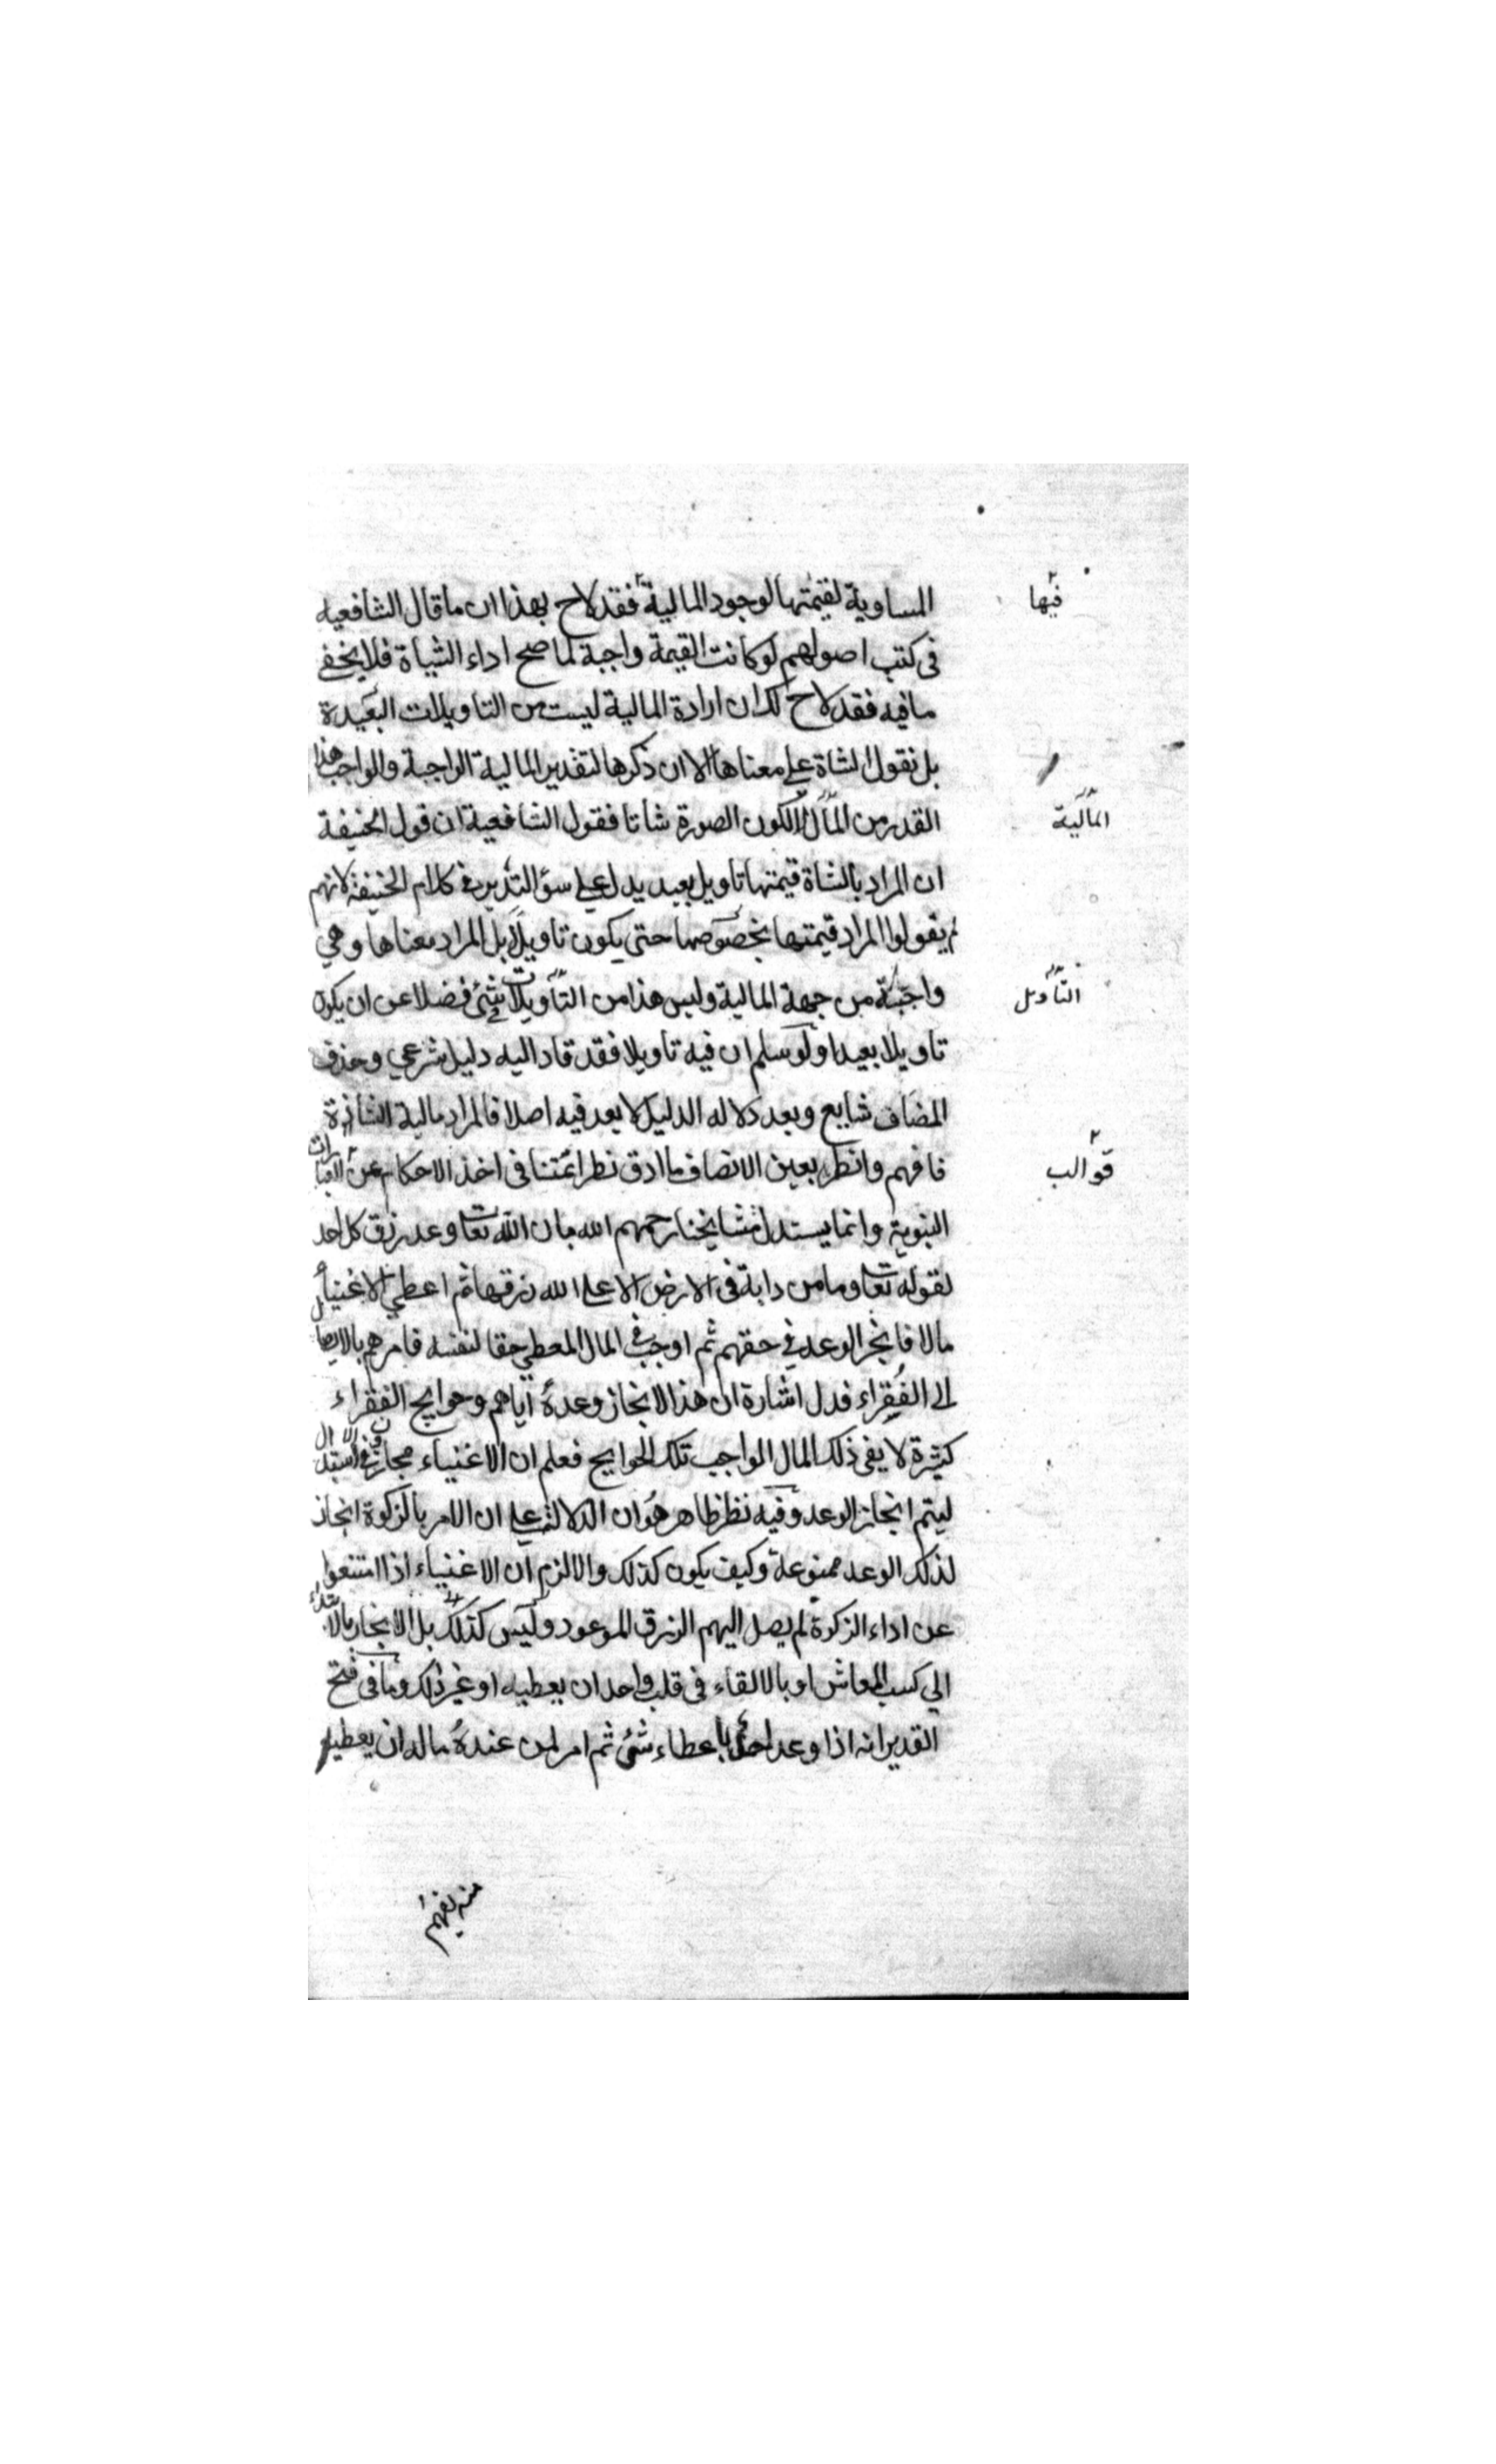 المساوية لقيمتها لوجود المالية فقد لاح بهذا ان ما قال الشافعيه
فيها
فى كتب اصولهم لو كانت القيمة واجبة لما صح اداء الشياة فلا يخفى
ما فيه فقد لاح لك ان ارادة المالية ليست من التاويلات البعيدة
بل نقول الشاة على معناها الا ان ذكرها لتقدير المالية الواجبة والواجب هذا
القدر من المال لا لكون الصورة شاتا فقول الشافعية ان قول الحنيفة
المالية
ان المراد بالشاة قيمتها تاويل بعيد يدل على سؤ التدبر فى كلام الحنيفة لانهم
لم يقولوا المراد قيمتها بخصوصها حتى يكون تاويلا بل المراد معناها وهي
واجبة من جهة المالية وليس هذا من التأويلات فى شئ فضلا عن ان يكون
التأويل
تاويلا بعيدا ولو سلم ان فيه تاويلا فقد قاد اليه دليل شرعي وحذف
المضاف شايع وبعد دلاله الدليل لا بعد فيه اصلا فالمراد مالية الشاة
فافهم وانظر بعين الانصاف ما ادق نظر ائمتنا فى اخذ الاحكام عن العبارات
قوالب
النبوية وانما يستدل مشايخنا رحمهم الله بان الله تعا وعد رزق كل احد
لقوله تعا وما من دابة فى الارض الا على الله رزقها ثم اعطى الاغنيأ
مالا فانجز الوعد في حقهم ثم اوجب فى المال المعطي حقا لنفسه فامرهم بالايصال
الى الفقراء فدل اشارة ان هذا لانجاز وعده اياهم وحوايج الفقراء
كثيرة لا يفى ذلك المال الواجب تلك الحوايج فعلم ان الاغنياء مجازون فى الاستبدال
ليتم انجاز الوعد وفيه نظر ظاهر هو ان الدلالة على ان الامر بالزكوة انجاز
لذلك الوعد ممنوعة وكيف يكون كذلك والا لزم ان الاغنياء اذا امتنعوا
عن اداء الزكوة لم يصل اليهم الرزق الموعود وليس كذلك بل الانجاز بالابتداء
الي كسب المعاش او بالالقاء فى قلب واحد ان يعطيه او غير ذلك وما فى فتح
القدير انه اذا وعد احدا باعطاء شئ ثم امر لمن عنده ماله ان يعطيه
منه يفهم